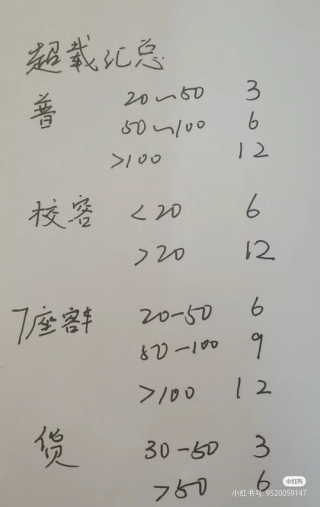 超载汇总
普 20~50 3
50~100 6
>100 12
校客 <20 6
>20 12
7座客车 20-50 6
50-100 9
>100 12
货 30-50 3
>50 6
小红书
小红书号:9520059147